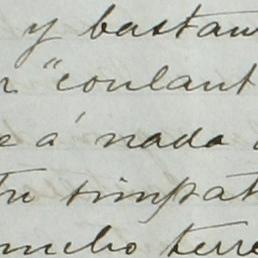 y bastan
"coulant
á nada
simpat
mucho terre